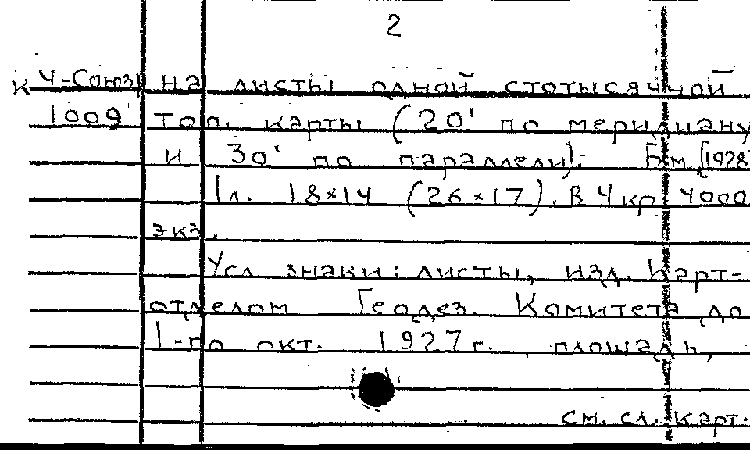 2
К Ч-Союз на листы одной стотысячной
1009 топ. карты (20' по меридиану
и 30' по параллели). Б.м. [1928
1л. 18×14 (26×17). В 4 кр 4000
экз.
Усл знаки: листы, изд. Карт-
отделом Геодез. Комитета до
1-го окт. 1927 г. площадь,
см. сл. карт.